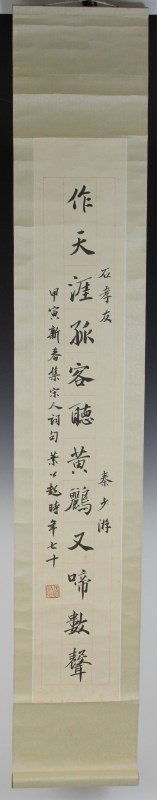 石孝友
秦少游
作天涯孤客聽黃鸝又啼數聲
甲寅新春集宋人詞句 葉公超時年七十